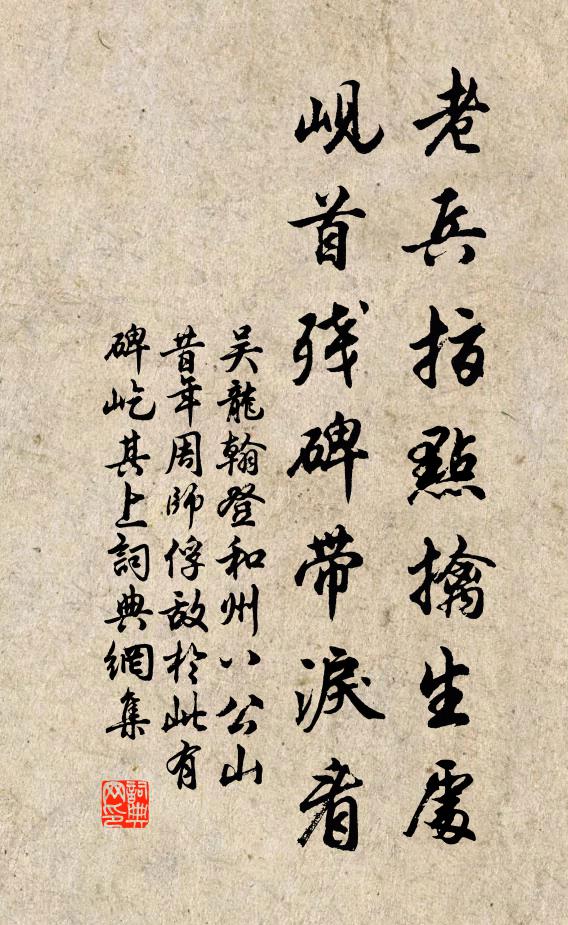 老兵指點擒生處
峴首殘碑帶淚看
吴龍翰登和州八公山
昔年周師俘敌於此有
碑屹其上詞典網集
詞典网印